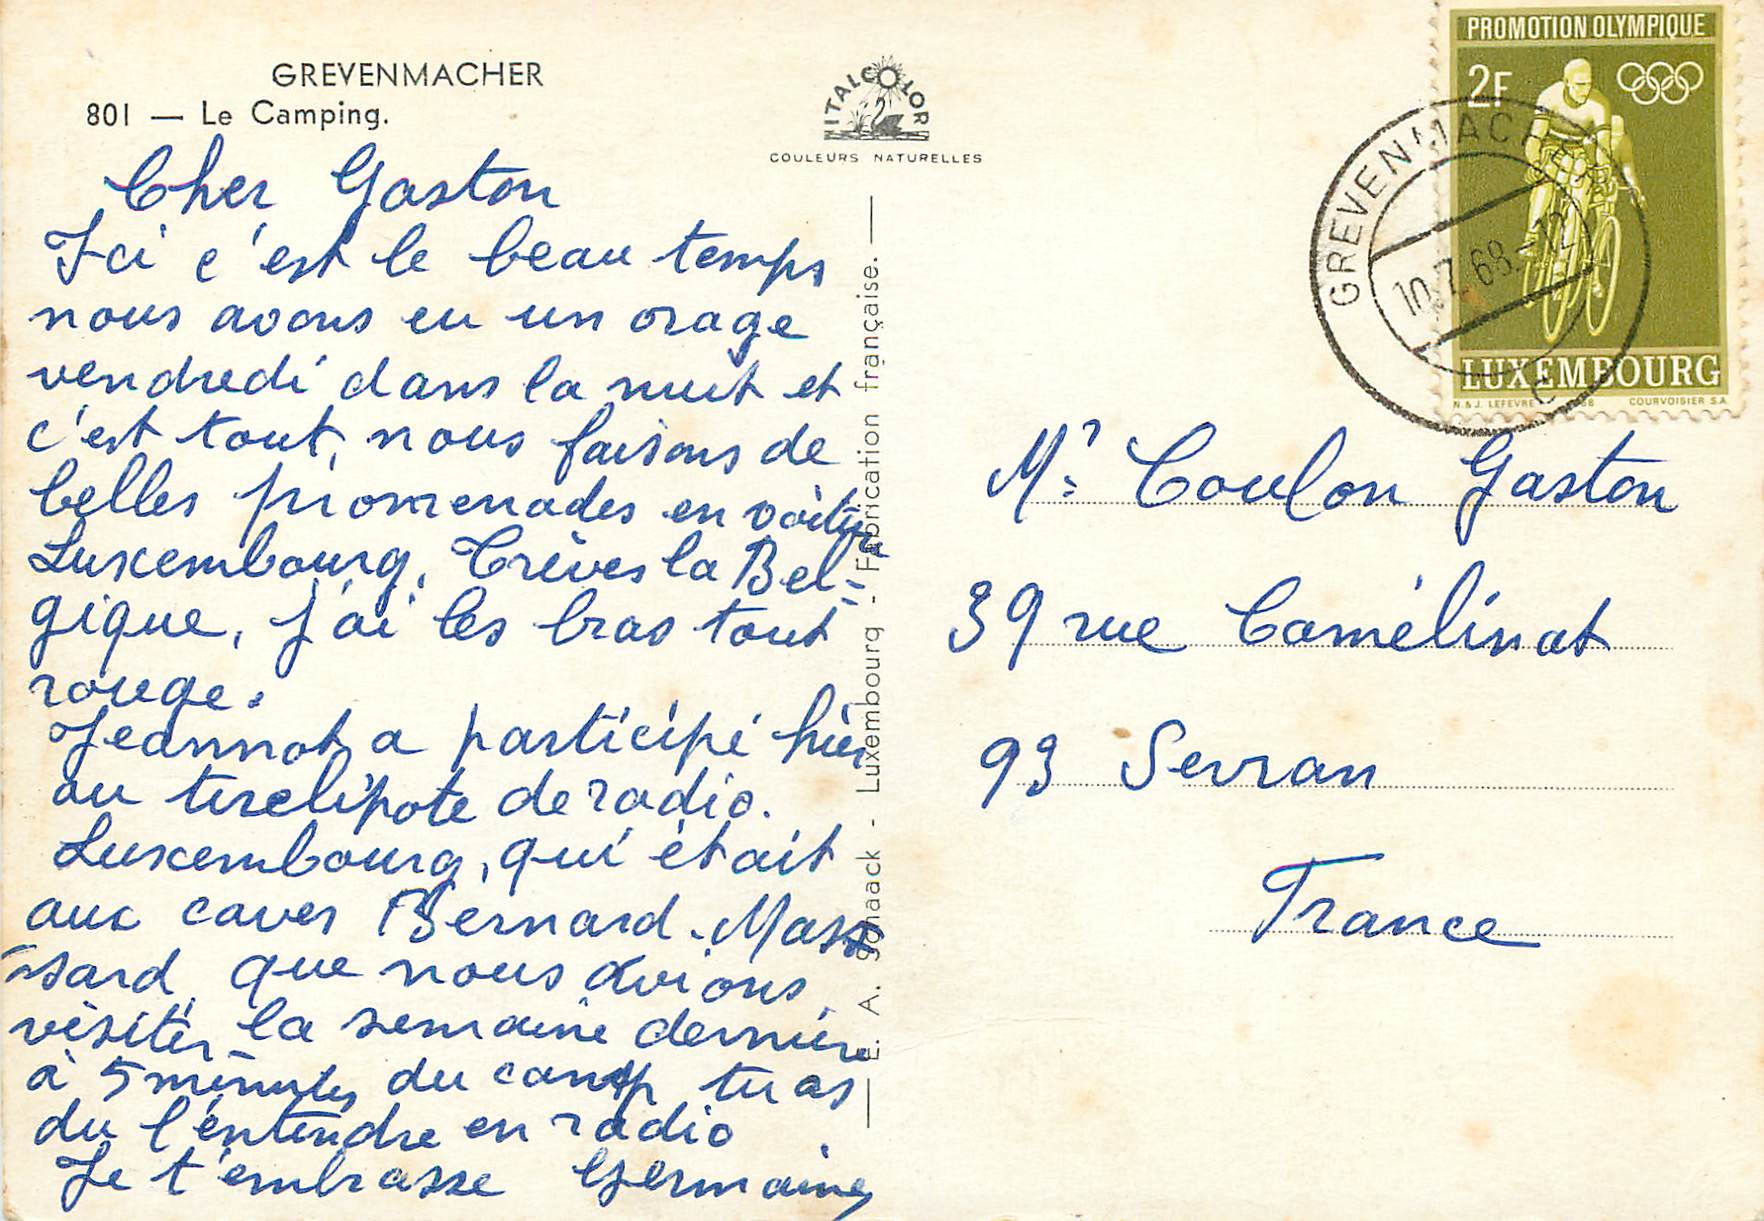 GREVENMACHER
801 — Le Camping.
ITALCOLOR
COULEURS NATURELLES
Cher Gaston
Ici c'est le beau temps
nous avons eu un orage
vendredi dans la nuit et
c'est tout, nous faisons de
belles promenades en voiture
Luxembourg, Trèves la Bel-
gique, j'ai les bras tout
rouge.
Jeannot a participé hier
au tirelipote de radio.
Luxembourg, qui était
aux caves Bernard-Mas
sard que nous avions
visiter la semaine dernière
à 5 minutes du camp tu as
du l'entendre en radio
Je t'embrasse Germaine
— E. A. Schaack - Luxembourg - Fabrication française. —
PROMOTION OLYMPIQUE
2F
LUXEMBOURG
N. & J. LEFEVRE
COURVOISIER S.A
GREVENMACHER
10.7.68. 12
C
Mr Coulon Gaston
39 rue Camélinat
93 Sevran
France